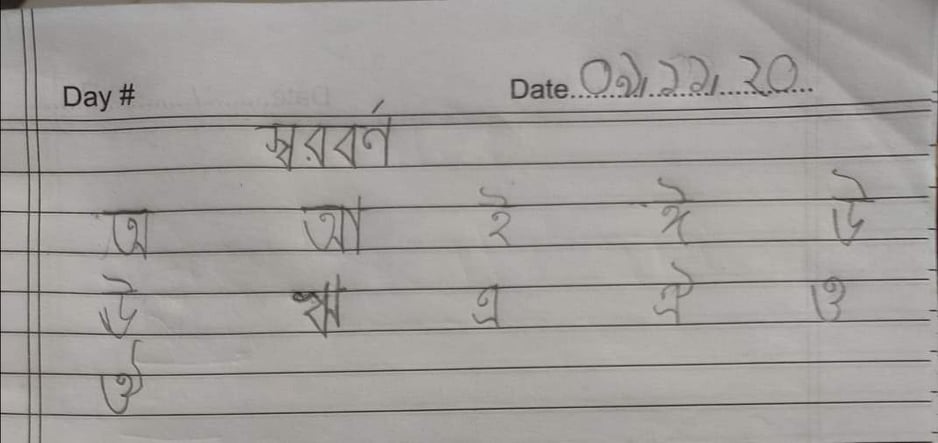 Day # Date 02.11.20
স্বরবর্ণ
অ আ ই ঈ উ
ঊ ঋ এ ঐ ও
ঔ